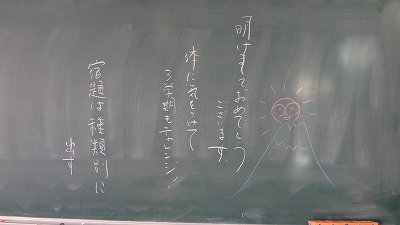 明けましておめでとう
ございます。
体に気をつけて
3学期もチャレンジ!
宿題は種類別に
出す